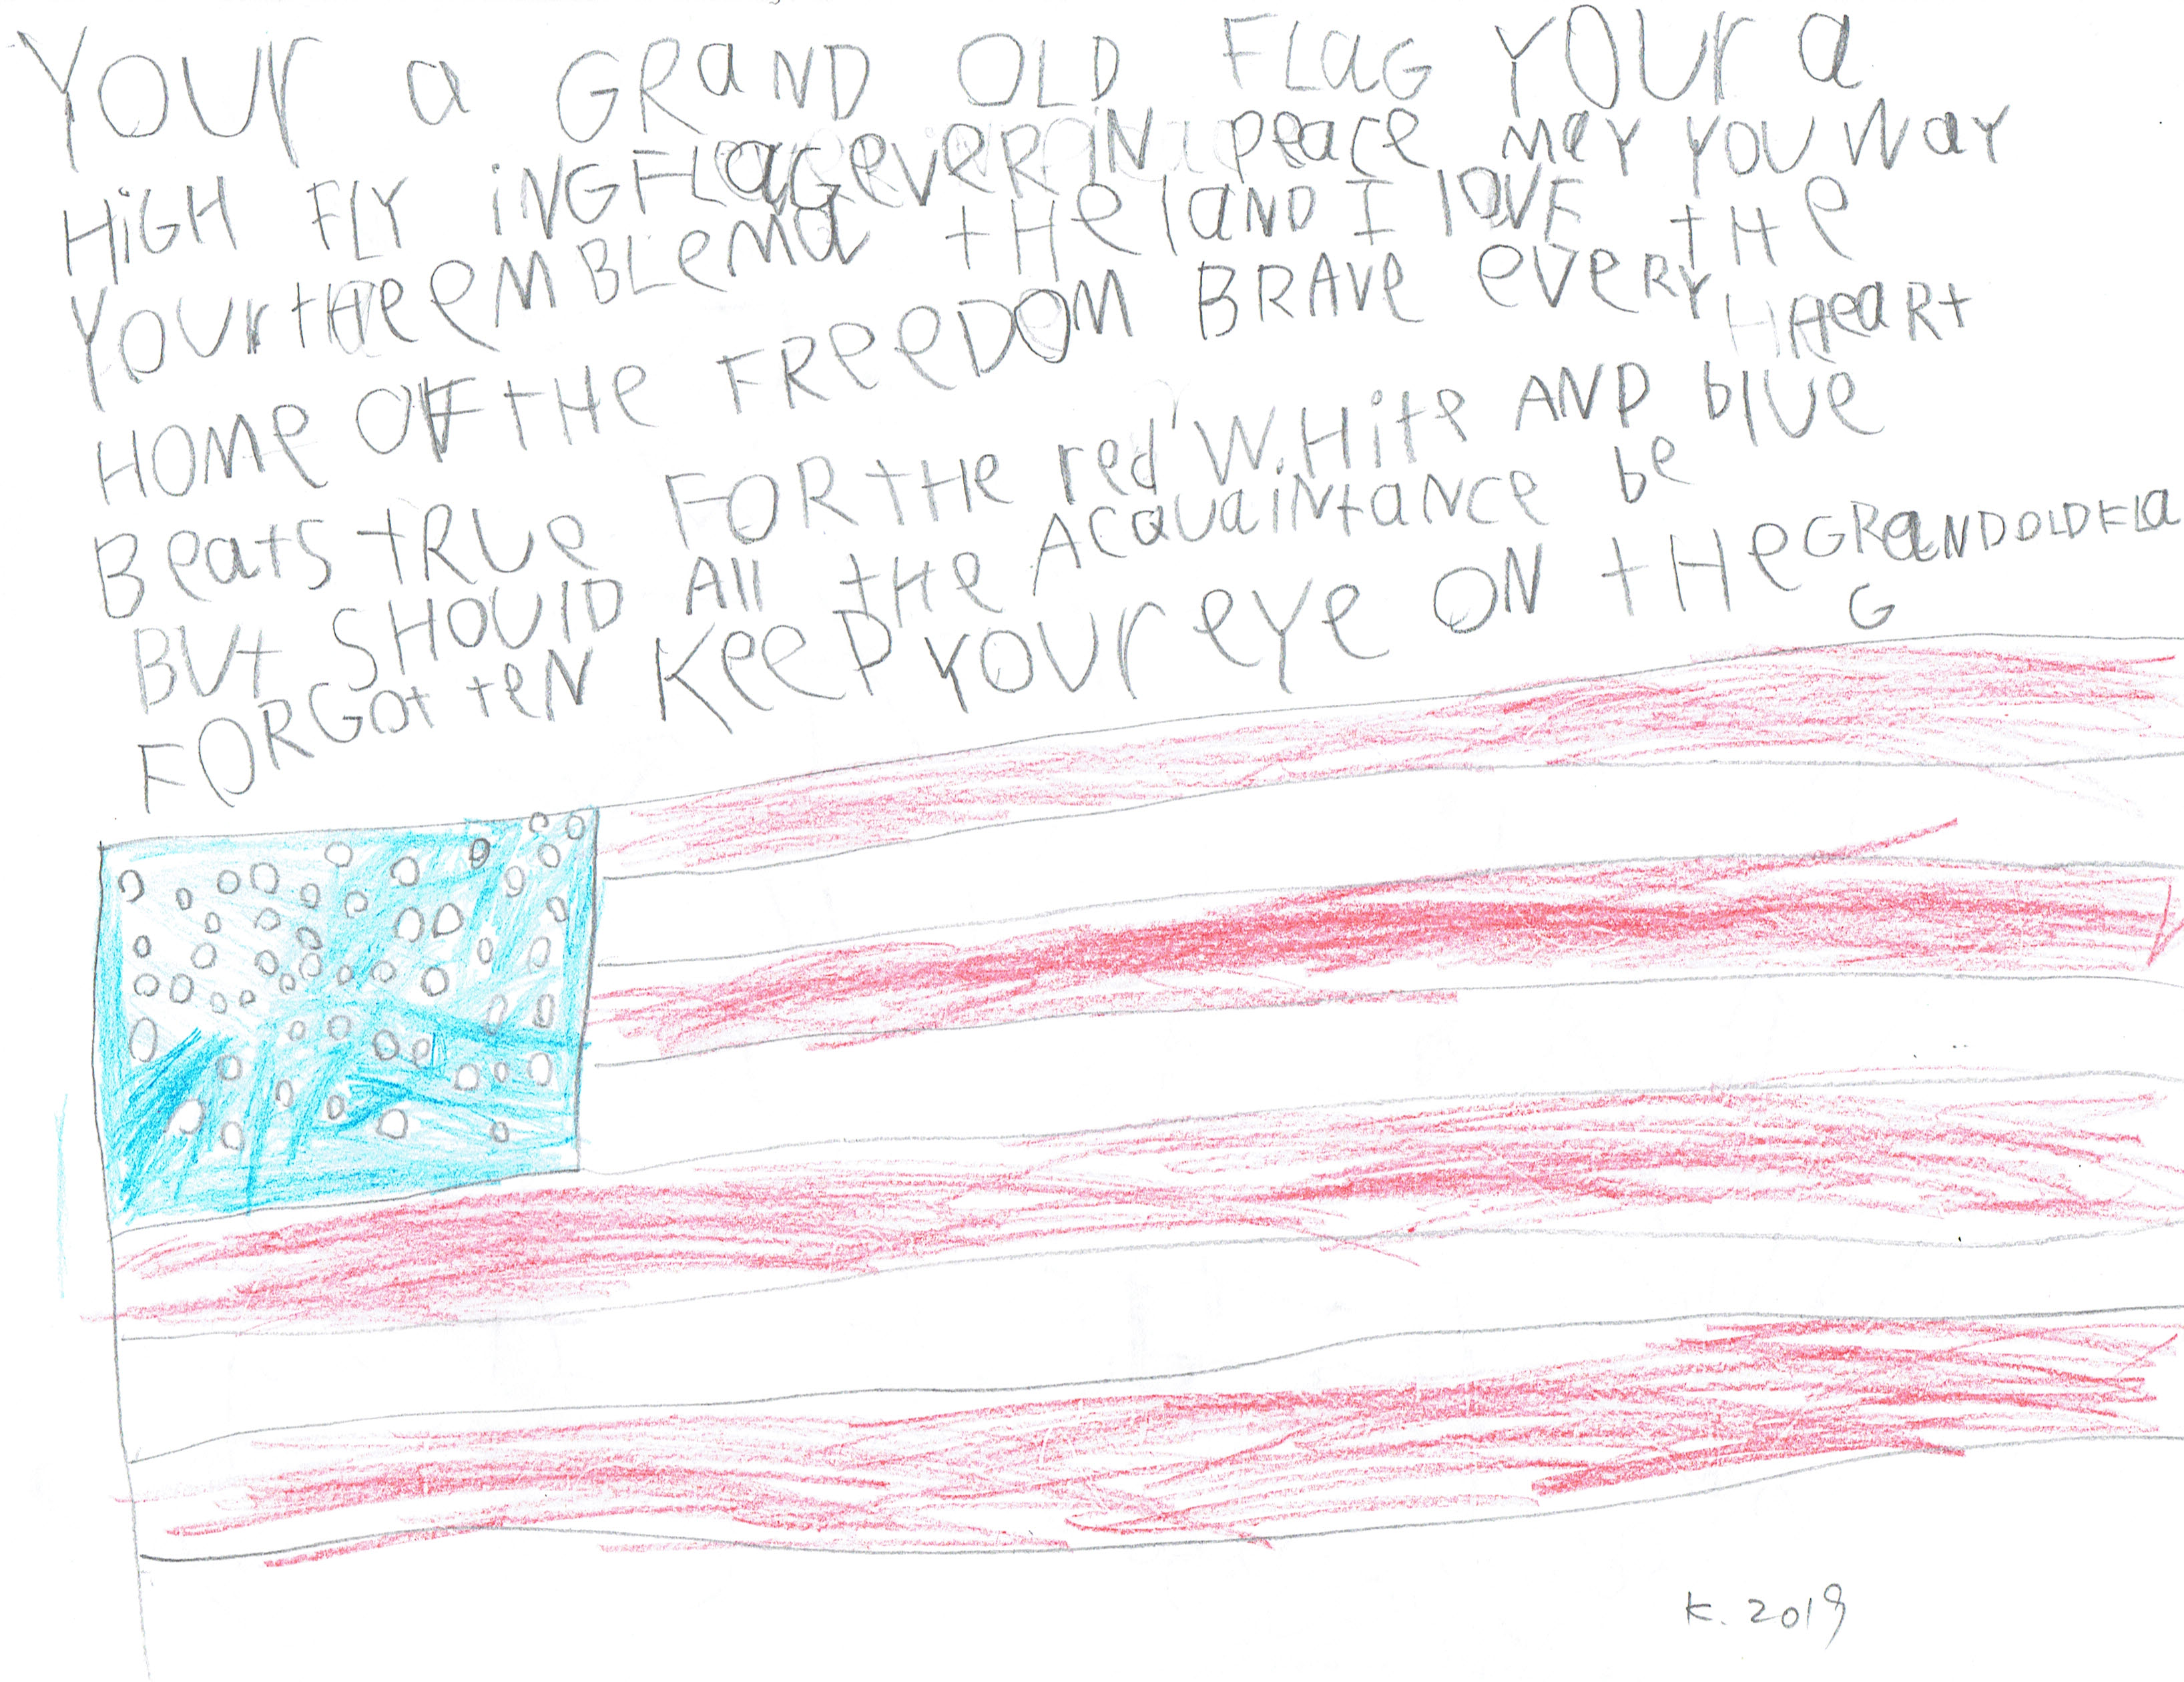 YOUr a GRaND OLD FLaG YOUr a
HiGH FLY iNGFLaGeveRIN peace may YOU WaY
YOUrtHeemBLema tHe laND I lOVE tHe
HOMe OF tHe FReeDOM BRAVe eveRY HeaRt
Beats tRUe FOR tHe red WHite AND blUe
BUt SHOUlD All tHe ACqUaiNtaNce be
FORGOt teN KeeP YOUr eYe ON tHe GRaNDOLDFLa
G
K. 2019